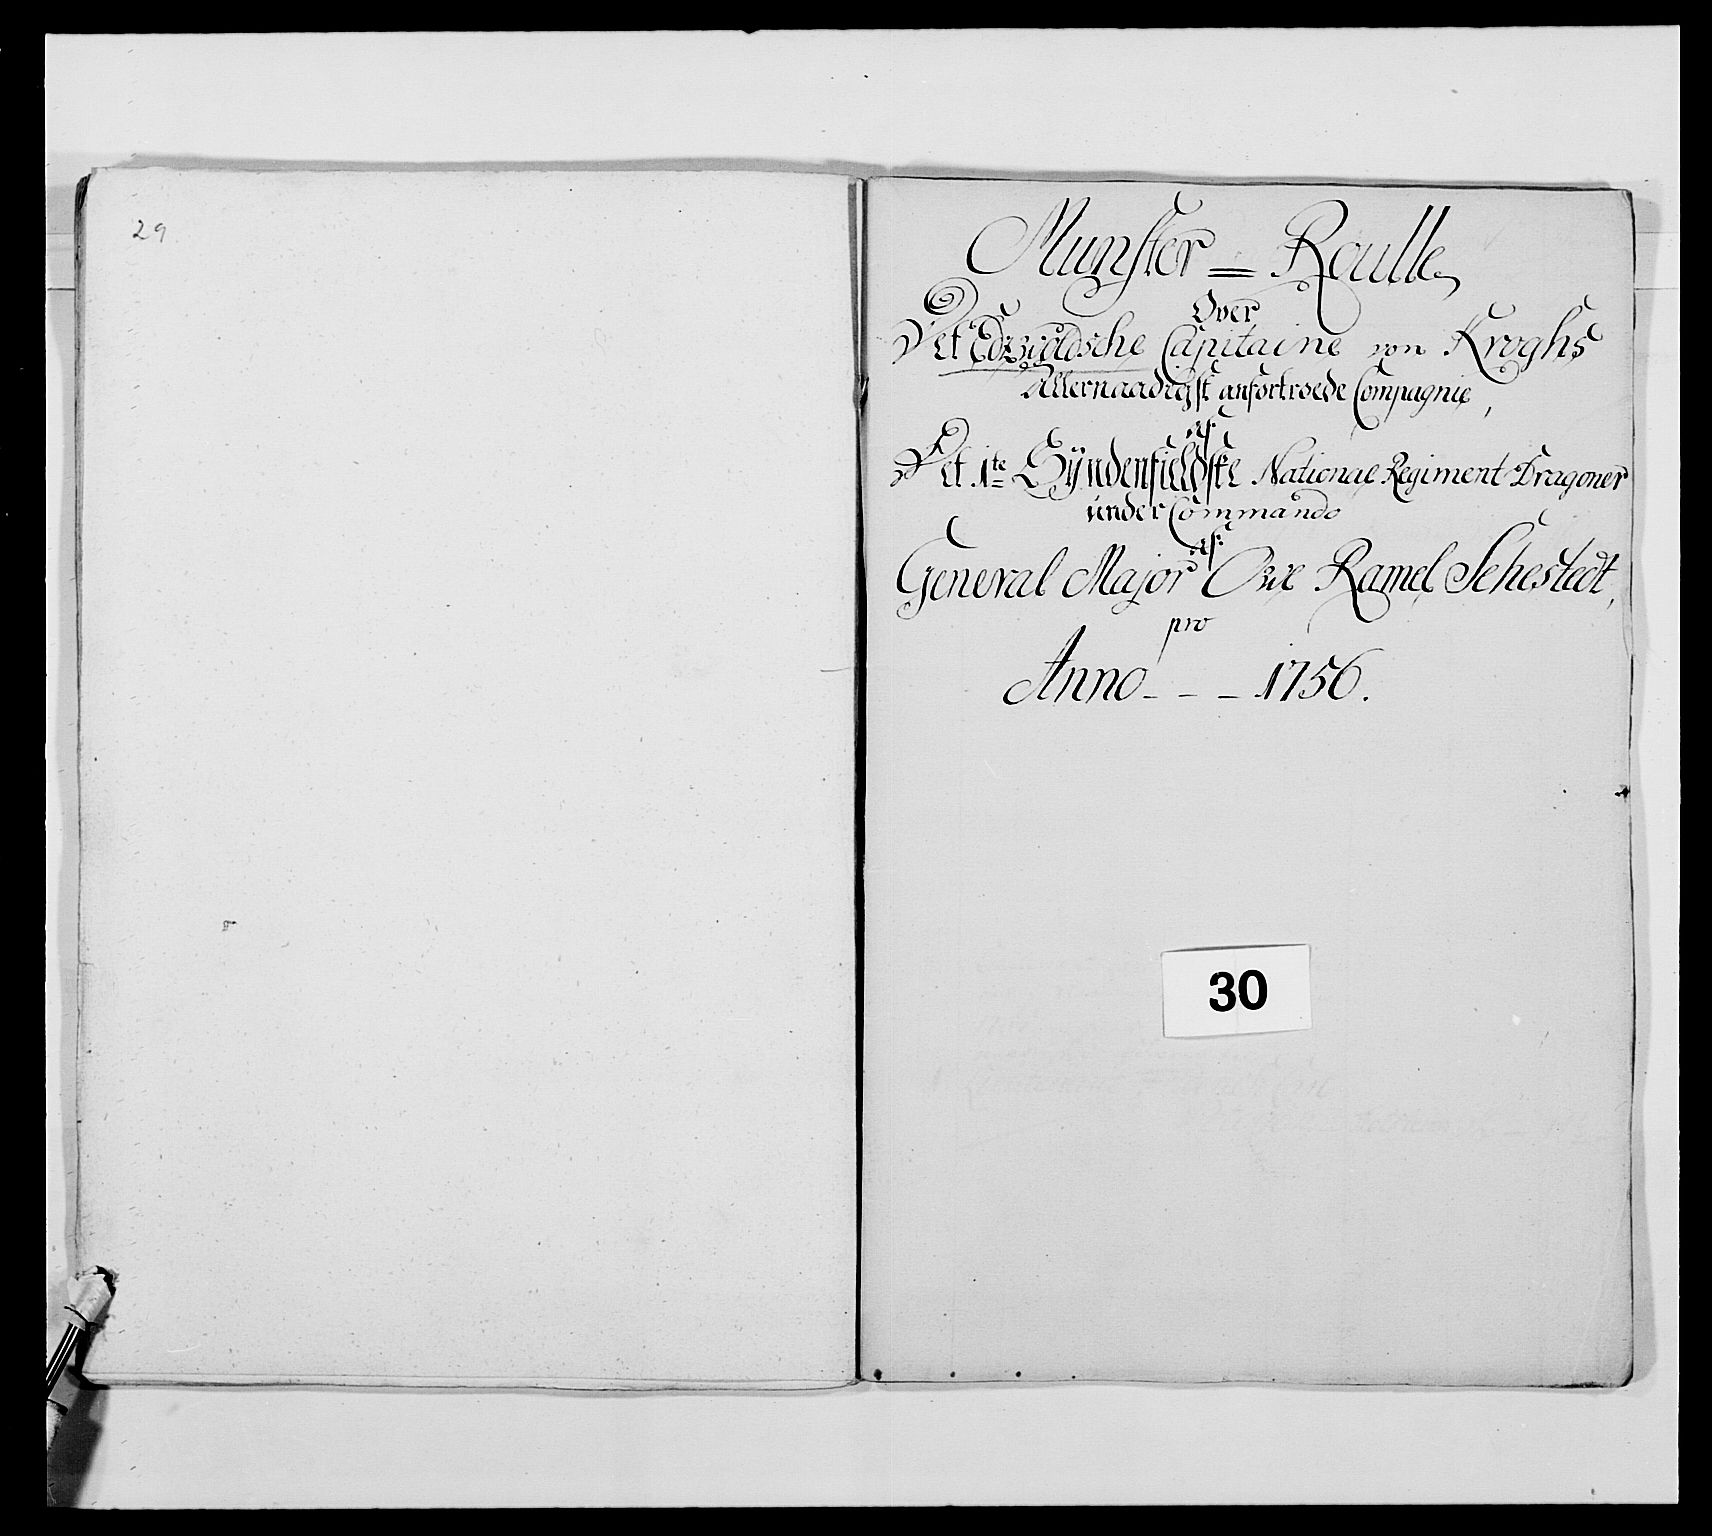 29
Munster = Roulle
Over
Det Edzvoldsche Capitaine von Kroghs
Allernaadigst anfortroede Compagnie,
af
Det 1te Syndenfieldske National Regiment Dragoner
under Commando
af
General Major Ove Ramel Sehestedt,
pro
Anno - - - 1756.
30